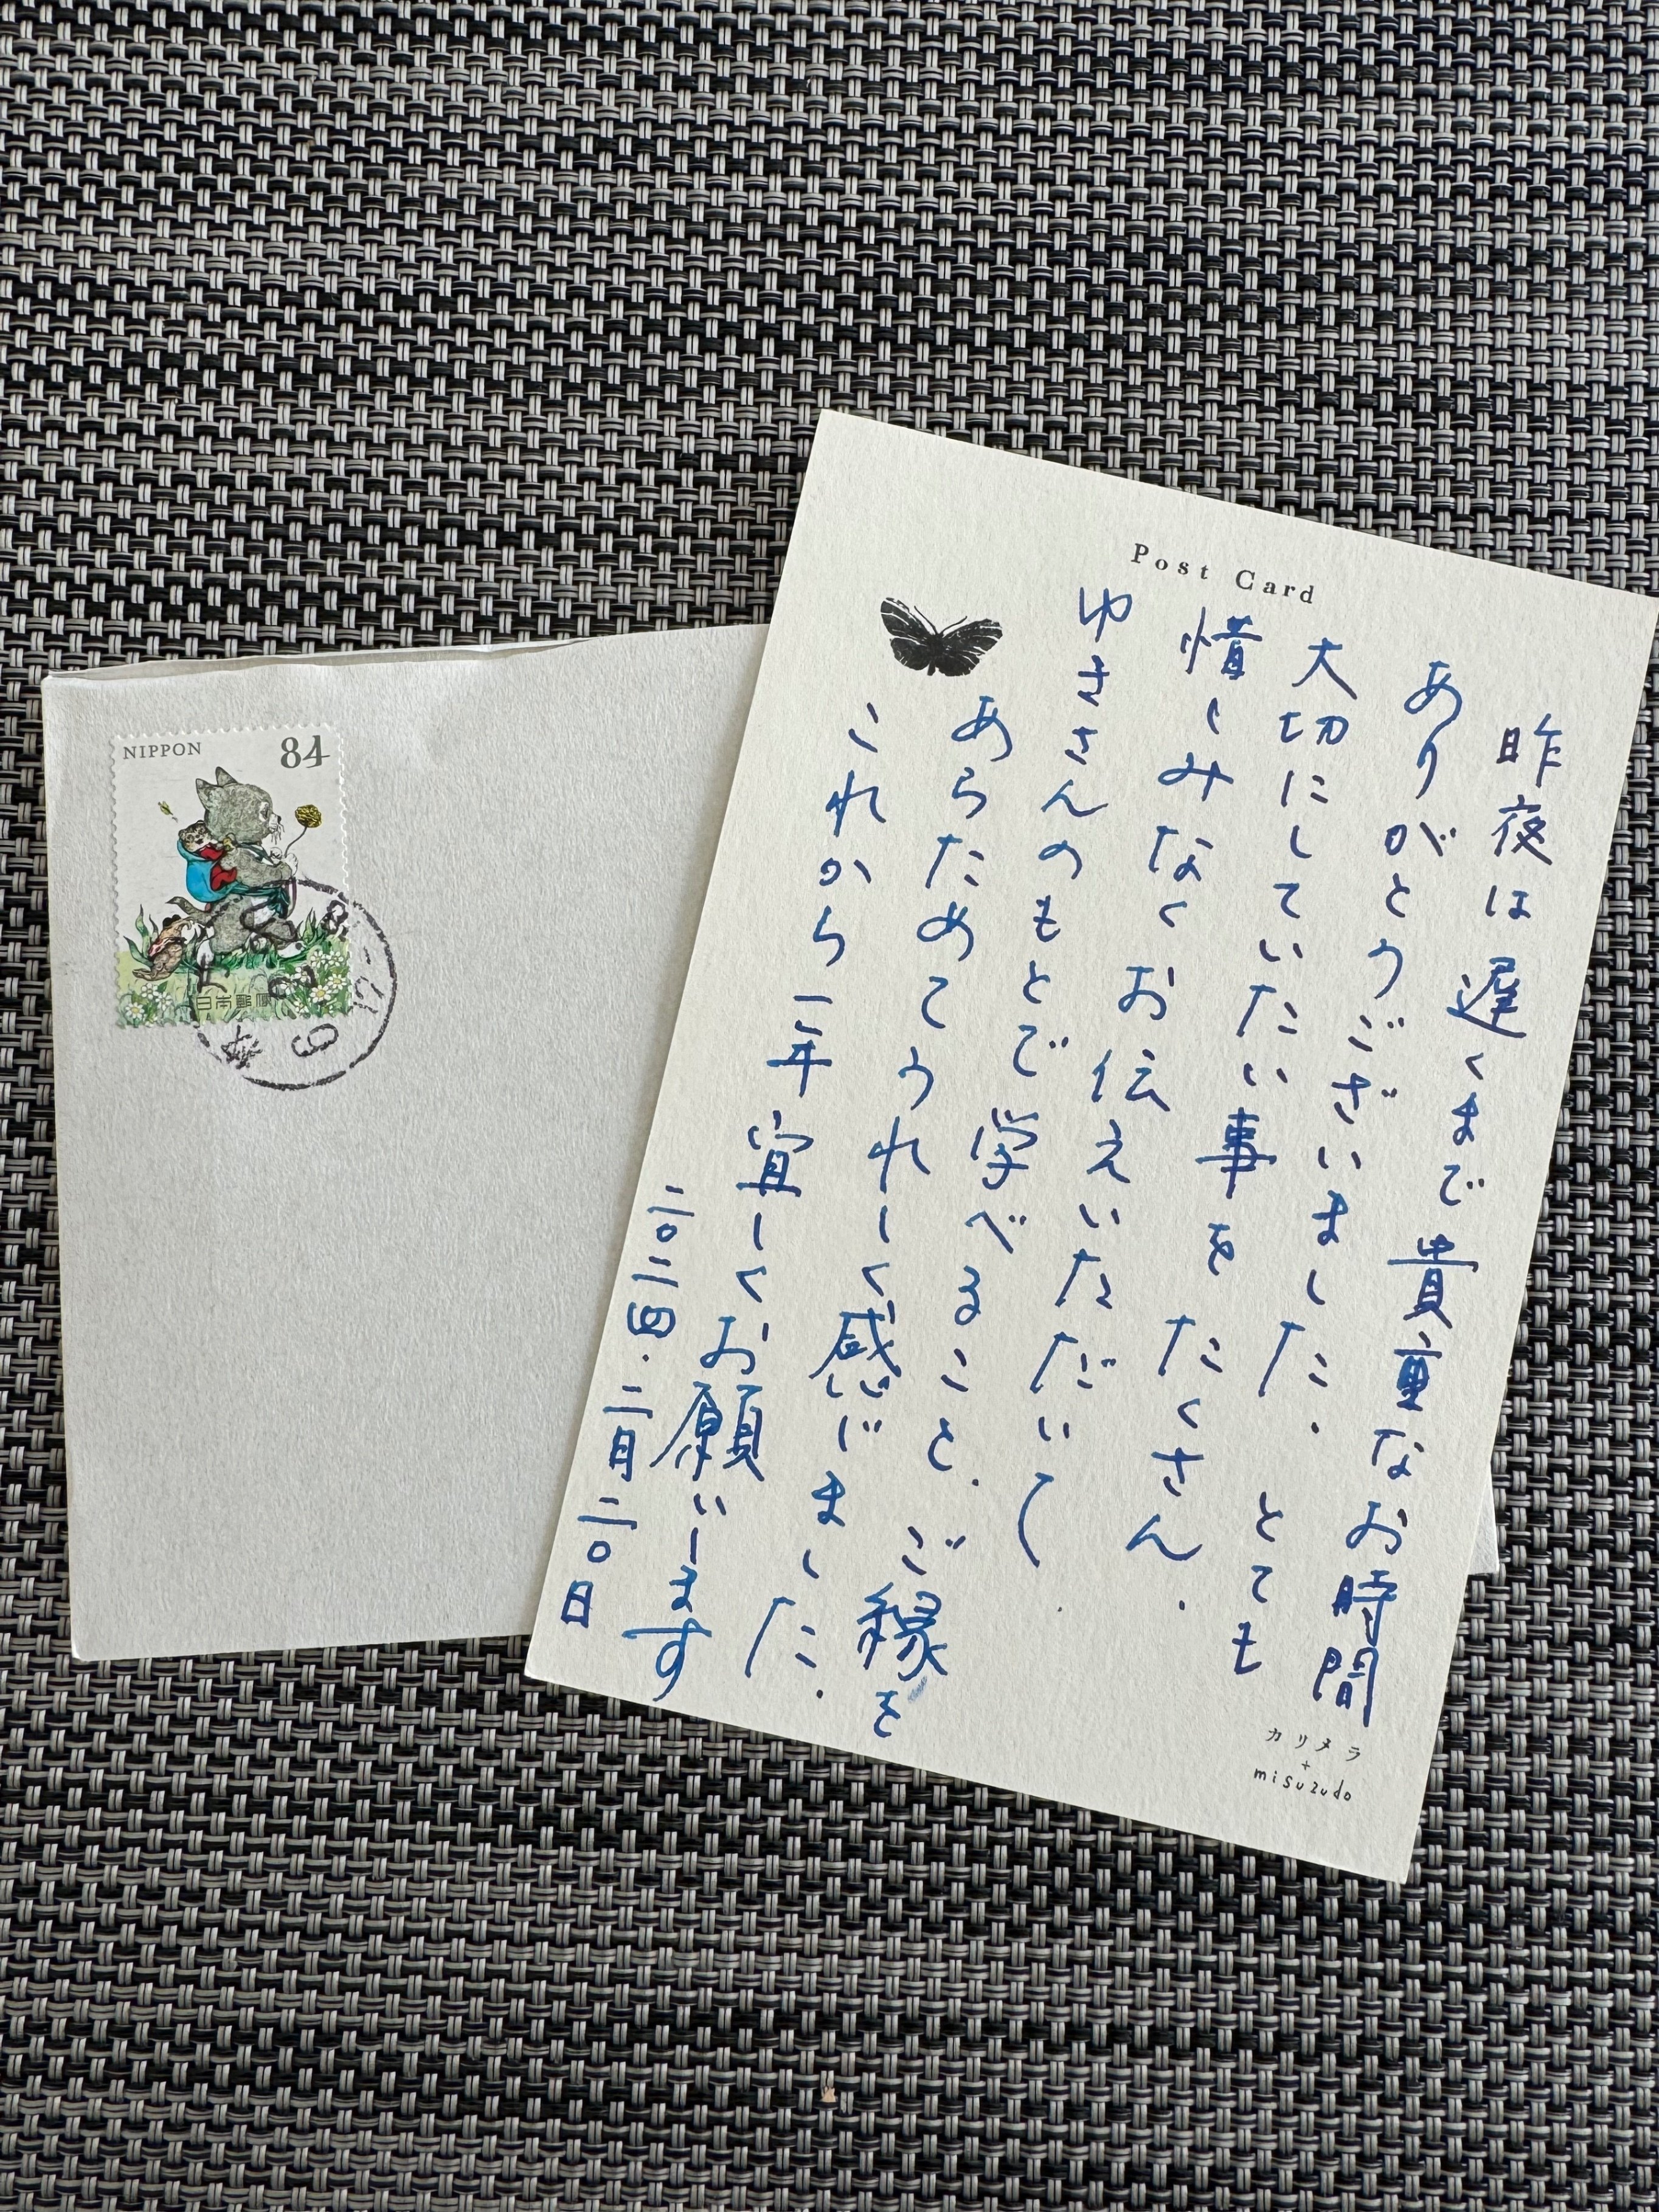 NIPPON 84
日本郵便
Post Card
昨夜は遅くまで貴重なお時間
ありがとうございました. とても
大切にしていたい事をたくさん.
惜しみなくお伝えいただいて.
ゆきさんのもとで学べること. ご縁を
あらためてうれしく感じました.
これから一年宜しくお願いします
二〇二四.二月二〇日
カリメラ
+
misuzudo